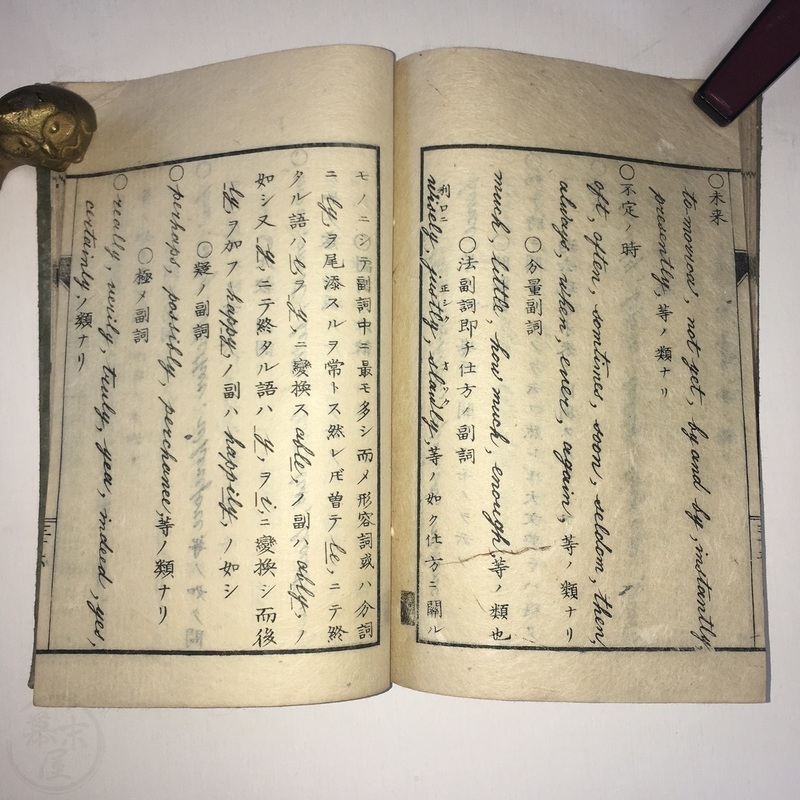 ○未来
to-morica, not yet, by and by, instantly,
presently, 等ノ類ナリ
○不定ノ時
oft, often, somtimes, soon, seldom, then,
always, when, ener, again, 等ノ類ナリ
○分量副詞
much, little, how much, enough, 等ノ類也
○法副詞即チ仕方ノ副詞
利口ニ 正シク
wisely, justly, slawly, 等ノ如ク仕方ニ關ル
モノニシテ副詞中ニ最モ多シ而メ形容詞或ハ分詞
ニ ly, ヲ尾添スルヲ常トス然レ𪜈曽テ le, ニテ終
タル語ハ e, ヲ y, ニ變換ス able ノ副ハ ably, ノ
如シ又 y, ニテ終タル語ハ y, ヲ i, ニ變換シ而後
ly, ヲ加フ happy, ノ副ハ happily, ノ如シ
○疑ノ副詞
○perhaps, possibly, perchance, 等ノ類ナリ
○極メ副詞
○really, verily, truly, yea, indeed, yes,
certainly, ノ類ナリ